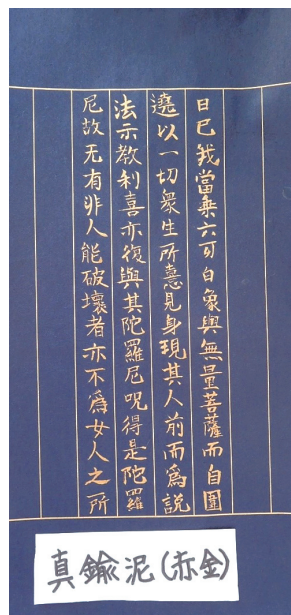 日已我當乗六牙白象與無量菩薩而自圍
遶以一切衆生所憙見身現其人前而爲説
法示教利喜亦復與其陀羅尼呪得是陀羅
尼故无有非人能破壞者亦不爲女人之所
真鍮泥(赤金)